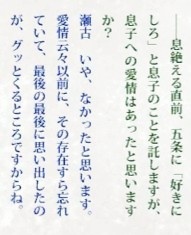 ――息絶える直前、五条に「好きに
しろ」と息子のことを託しますが、
息子への愛情はあったと思います
か？
瀬古　いや、なかったと思います。
愛情云々以前に、その存在すら忘れ
ていて、最後の最後に思い出したの
が、グッとくるところですからね。